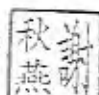 謝
秋燕